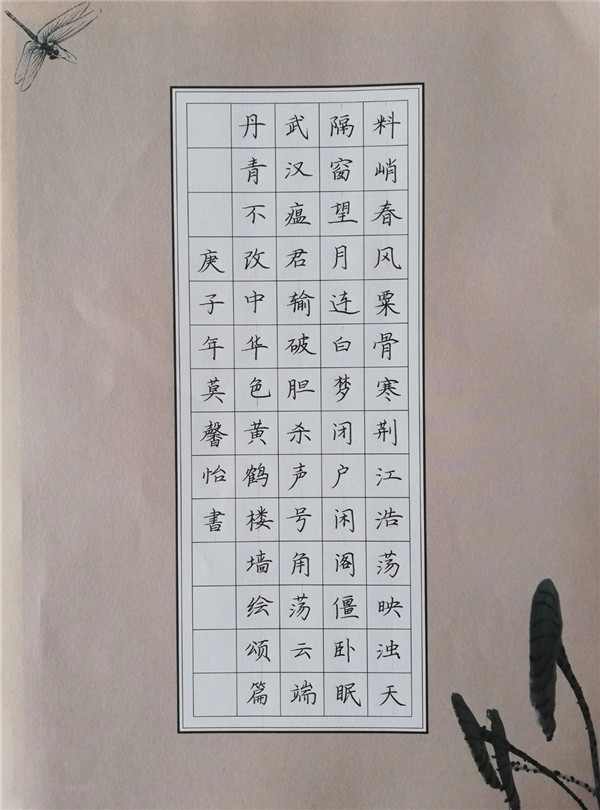 料峭春风粟骨寒荆江浩荡映浊天
隔窗望月连白梦闭户闲阁僵卧眠
武汉瘟君输破胆杀声号角荡云端
丹青不改中华色黄鹤楼墙绘颂篇
庚子年莫馨怡書